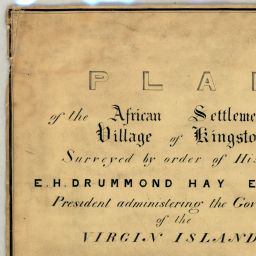 PLA
of the African Settleme
Village of Kingsto
Surveyed by order of His
E.H. DRUMMOND HAY E
President administering the Gov
of the
VIRGIN ISLAND